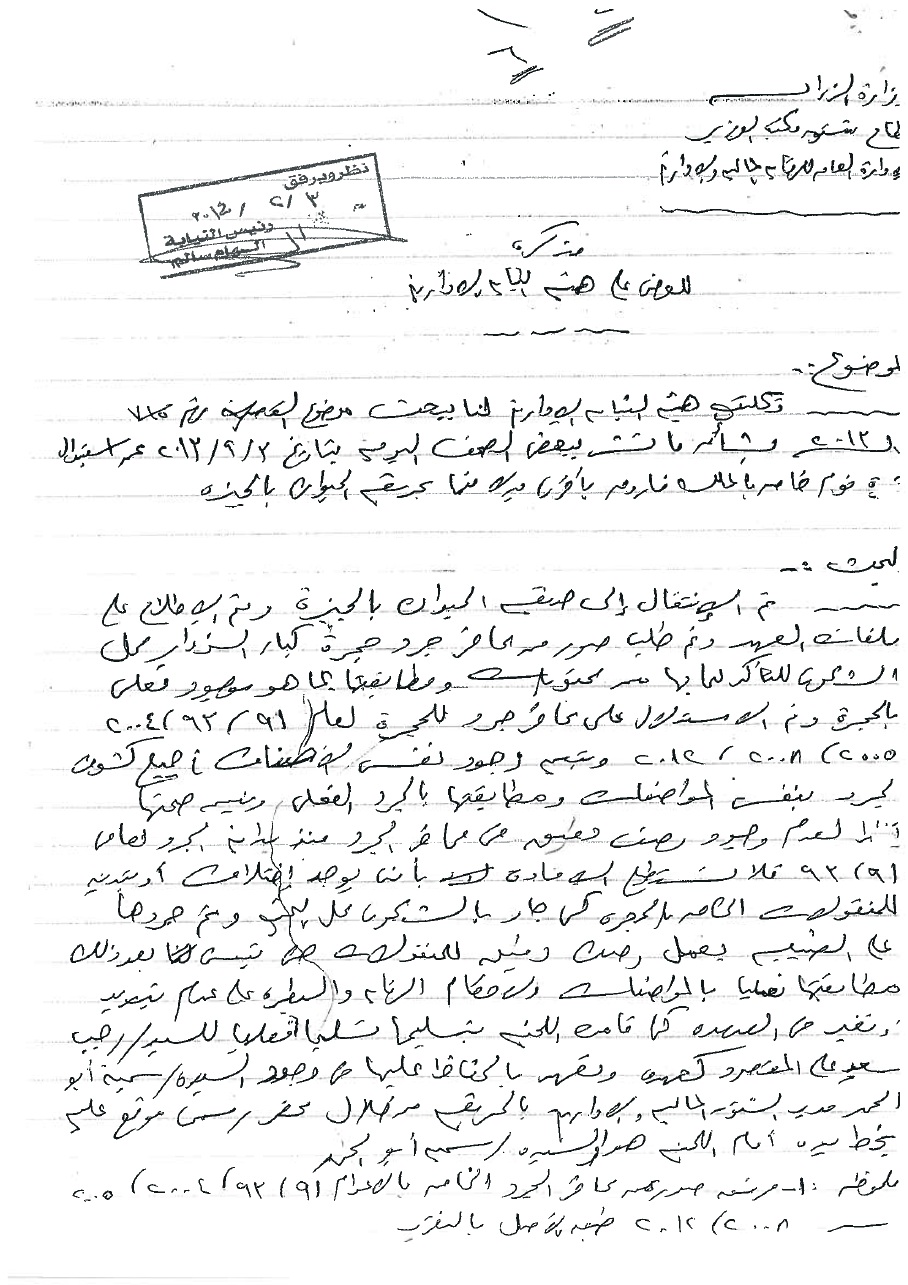 وزارة الزراعة
قطاع شئون مكتب الوزير
الإدارة العامة للرقابة المالية والإدارية
نظر ويرفق
٢٠١٤/٢/٣
رئيس النيابة
مذكرة
للعرض على هيئة النيابة الإدارية
الموضوع :-
تكليف هيئة النيابة الإدارية لنا ببحث موضوع القضية رقم
لسنة ٢٠١٣ وشأنه ما نشر ببعض الصحف اليومية بتاريخ ٢٠١٣/٩/٣ عن استبدال
غرفة نوم خاصة بالملك فاروق بأخرى بحديقة الحيوان بالجيزة
البحث :-
تم الإنتقال إلى حديقة الحيوان بالجيزة وتم الإطلاع على
ملفات العهد وتم طلب صور من محاضر جرد حجرة كبار الزوار محل
الشكوى للتأكد لما بها من محتويات ومطابقتها بما هو موجود فعلى
بالحجرة وتم الاستدلال على محاضر جرد للحجرة لعام ٩٣/٩١ / ٢٠٠٤
٢٠٠٥ / ٢٠٠٨ / ٢٠١٢ وتبين وجود نفس الأصناف فى جميع كشوف
الجرد بنفس المواصفات ومطابقتها بالجرد الفعلى وتبين صحتها
نظرا لعدم وجود وصف دقيق فى محاضر الجرد منذ بداية الجرد لعامى
٩٣/٩١ فلا نستطيع الإفادة بأنه يوجد إختلاف أو تبديد
للمنقولات الخاصة بالحجرة كما جاء بالشكوى محل البحث وتم جردها
على الطبيعة بعمل وصف دقيق للمنقولات حتى تيسر بعد ذلك
مطابقتها فعليا بالمواصفات ولإحكام الرقابة والسيطرة على عدم تبديد
وتغيير فى العهدة كما قامت اللجنة بتسليمها تسليما فعليا للسيد / رجب
سعيد على المقصود كعهدة وتعهد بالحفاظ عليها فى وجود السيدة / سمية أبو
الحمد مدير الشئون المالية والإدارية بالحديقة من خلال محضر رسمى موقع عليه
بخط يده أمام اللجنة هو والسيدة / سمية أبو الحمد
ملحوظة :- مرفق صورة من محاضر الجرد الخاصة بالأعوام ٩٣/٩١ / ٢٠٠٤ / ٢٠٠٥
٢٠٠٨ / ٢٠١٢ طبق الأصل بالتقرير